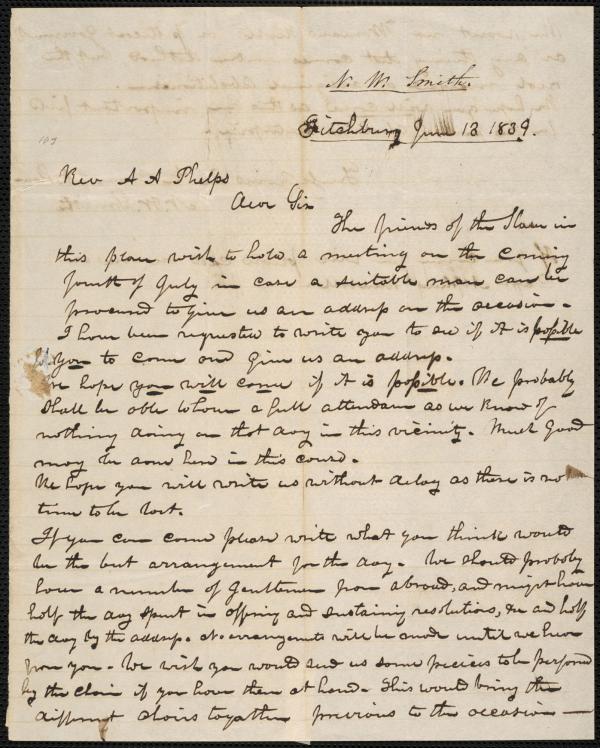 N. W. Smith.
Fitchburg June 13 1839.
Rev A A Phelps
Dear Sir
The friends of the Slave in
this place wish to hold a meeting on the coming
fourth of July in case a suitable man can be
procured to give us an address on the occasion.
I have been requested to write you to see if it is possible
for you to come and give us an address.
We hope you will come if it is possible. We probably
shall be able to have a full attendance as we know of
nothing doing on that day in this vicinity. Much good
may be done here in this course.
We hope you will write us without delay as there is no
time to be lost.
If you can come please write what you think would
be the best arrangement for the day. We should probably
have a number of Gentlemen from abroad, and might have
half the day spent in offering and sustaining resolutions, &c and half
the day by the address. No arrangements will be made until we hear
from you. We wish you would send us some pieces to be performed
by the Choir if you have them at hand. This would bring the
different choirs together previous to the occasion —